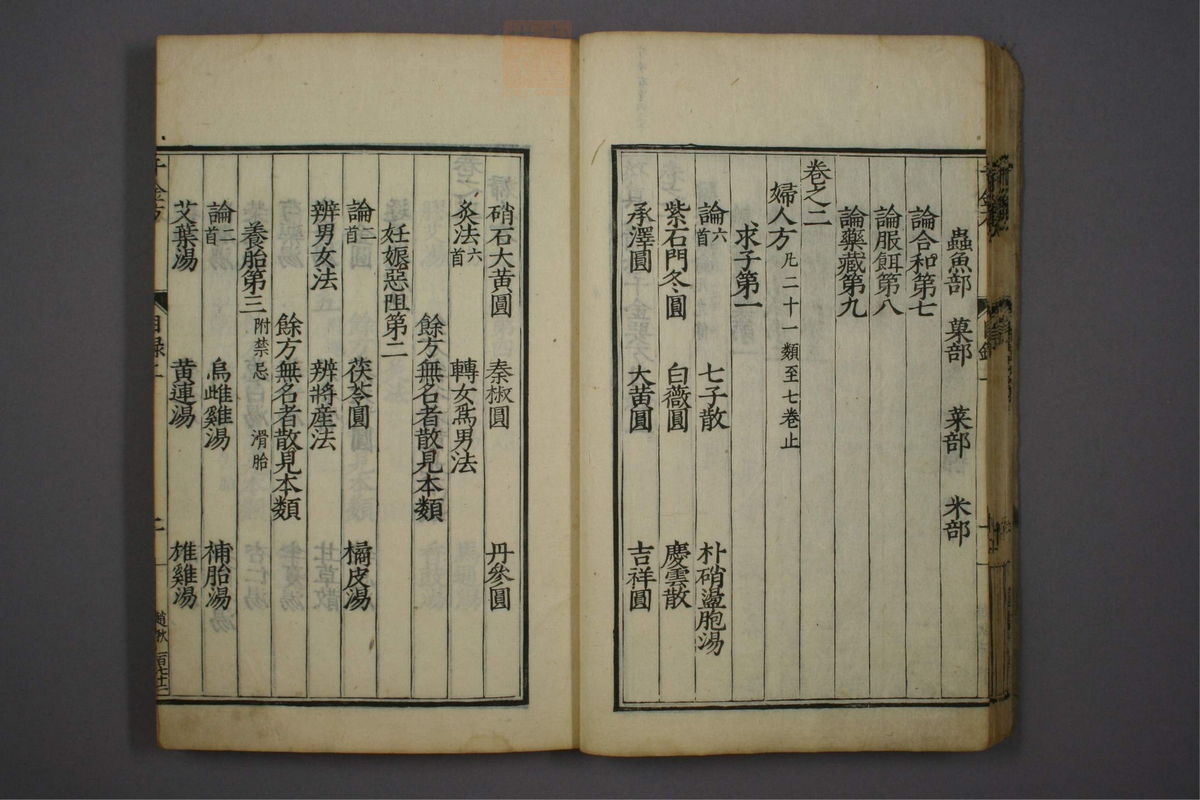 蟲魚部 菓部 菜部 米部
論合和第七
論服餌第八
論藥藏第九
卷之二
婦人方凡二十一類至七卷止
求子第一
論六首 七子散 朴硝盪胞湯
紫石門冬圓 白薇圓 慶雲散
承澤圓 大黃圓 吉祥圓
硝石大黃圓 秦椒圓 丹參圓
灸法六首 轉女爲男法
餘方無名者散見本類
妊娠惡阻第二
論二首 茯苓圓 橘皮湯
辨男女法 辨將産法
餘方無名者散見本類
養胎第三附禁忌 滑胎
論二首 烏雌雞湯 補胎湯
艾葉湯 黃連湯 雄雞湯
千金方 目録 二